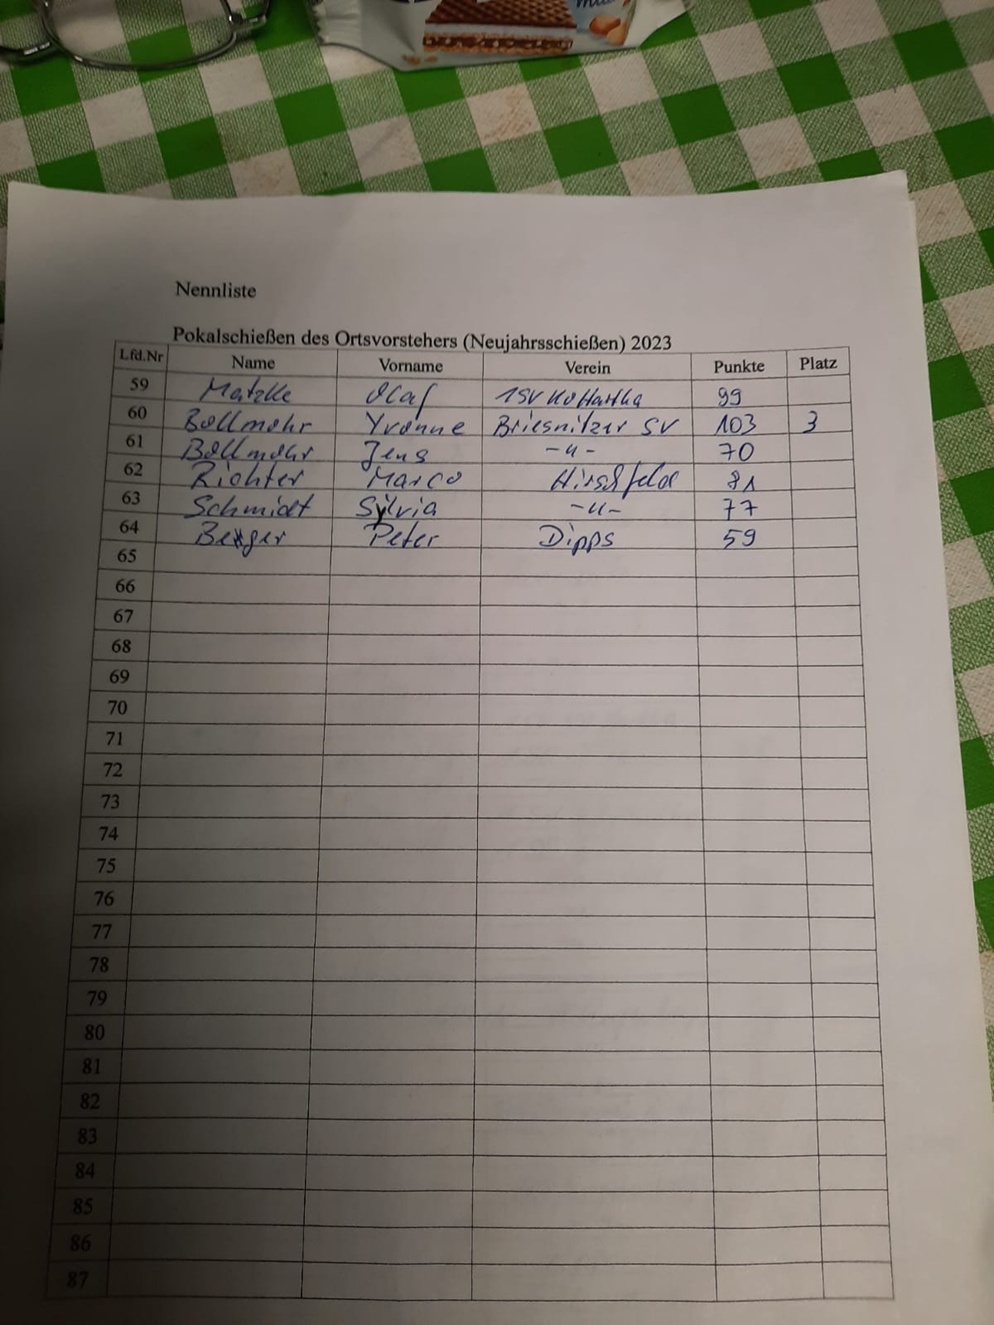 Nennliste
Pokalschießen des Ortsvorstehers (Neujahrsschießen) 2023
Lfd.Nr Name Vorname Verein Punkte Platz
59 Matzke Olaf 1SV KoHartha 99
60 Bellmohr Yvonne Briesnitzer SV 103 3
61 Bellmohr Jens -"- 70
62 Richter Marco Hirschfeld 81
63 Schmidt Sylvia -"- 77
64 Berger Peter Dipps 59
65
66
67
68
69
70
71
72
73
74
75
76
77
78
79
80
81
82
83
84
85
86
87